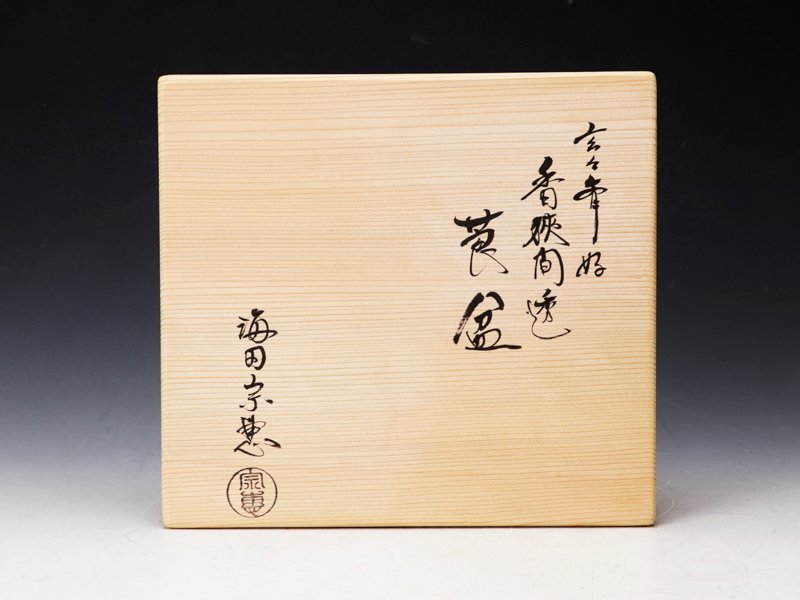 玄々斎好
香狭間透
莨盆
海田宗恵
宗恵